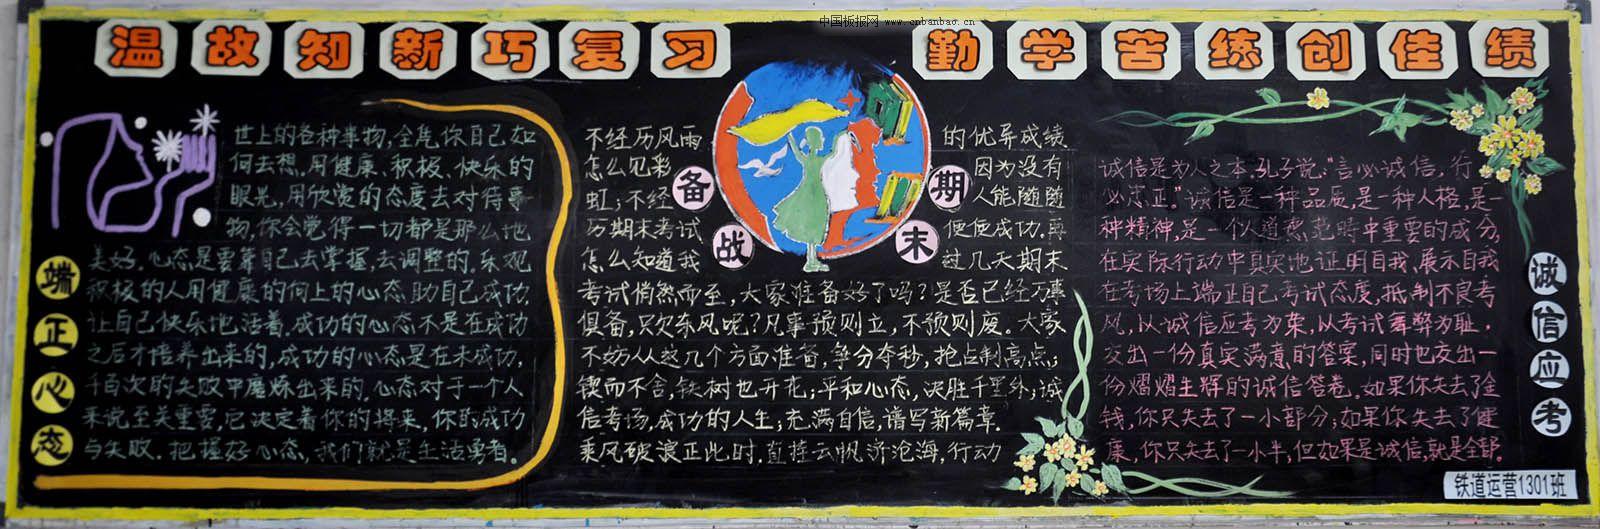 中国板报网 www.cnbanbao.cn
温故知新巧复习
勤学苦练创佳绩
端正心态
世上的各种事物,全凭你自己如
何去想。用健康、积极、快乐的
眼光,用欣赏的态度去对待事
物,你会觉得一切都是那么地
美好。心态是要靠自己去掌握,去调整的。乐观
积极的人用健康的向上的心态助自己成功,
让自己快乐地活着。成功的心态不是在成功
之后才培养出来的,成功的心态是在未成功,
千百次的失败中磨炼出来的。心态对于一个人
来说至关重要,它决定着你的将来,你的成功
与失败。把握好心态,我们就是生活勇者。
备战期末
不经历风雨
怎么见彩
虹;不经
历期末考试
怎么知道我
的优异成绩
因为没有
人能随随
便便成功。再
过几天期末
考试悄然而至,大家准备好了吗?是否已经万事
俱备,只欠东风呢?凡事预则立,不预则废。大家
不妨从这几个方面准备,争分夺秒,抢占制高点;
锲而不舍,铁树也开花;平和心态,决胜千里外;诚
信考场,成功的人生;充满自信,谱写新篇章。
乘风破浪正此时,直挂云帆济沧海,行动
诚信是为人之本,孔子说:"言必诚信,行
必忠正。"诚信是一种品质,是一种人格,是一
种精神,是一个人道德范畴中重要的成分,
在实际行动中真实地证明自我,展示自我
在考场上端正自己考试态度,抵制不良考
风,以诚信应考为荣,以考试舞弊为耻,
交出一份真实满意的答案,同时也交出一
份熠熠生辉的诚信答卷。如果你失去了金
钱,你只失去了一小部分;如果你失去了健
康,你只失去了一小半,但如果是诚信,就是全部。
诚信应考
铁道运营1301班